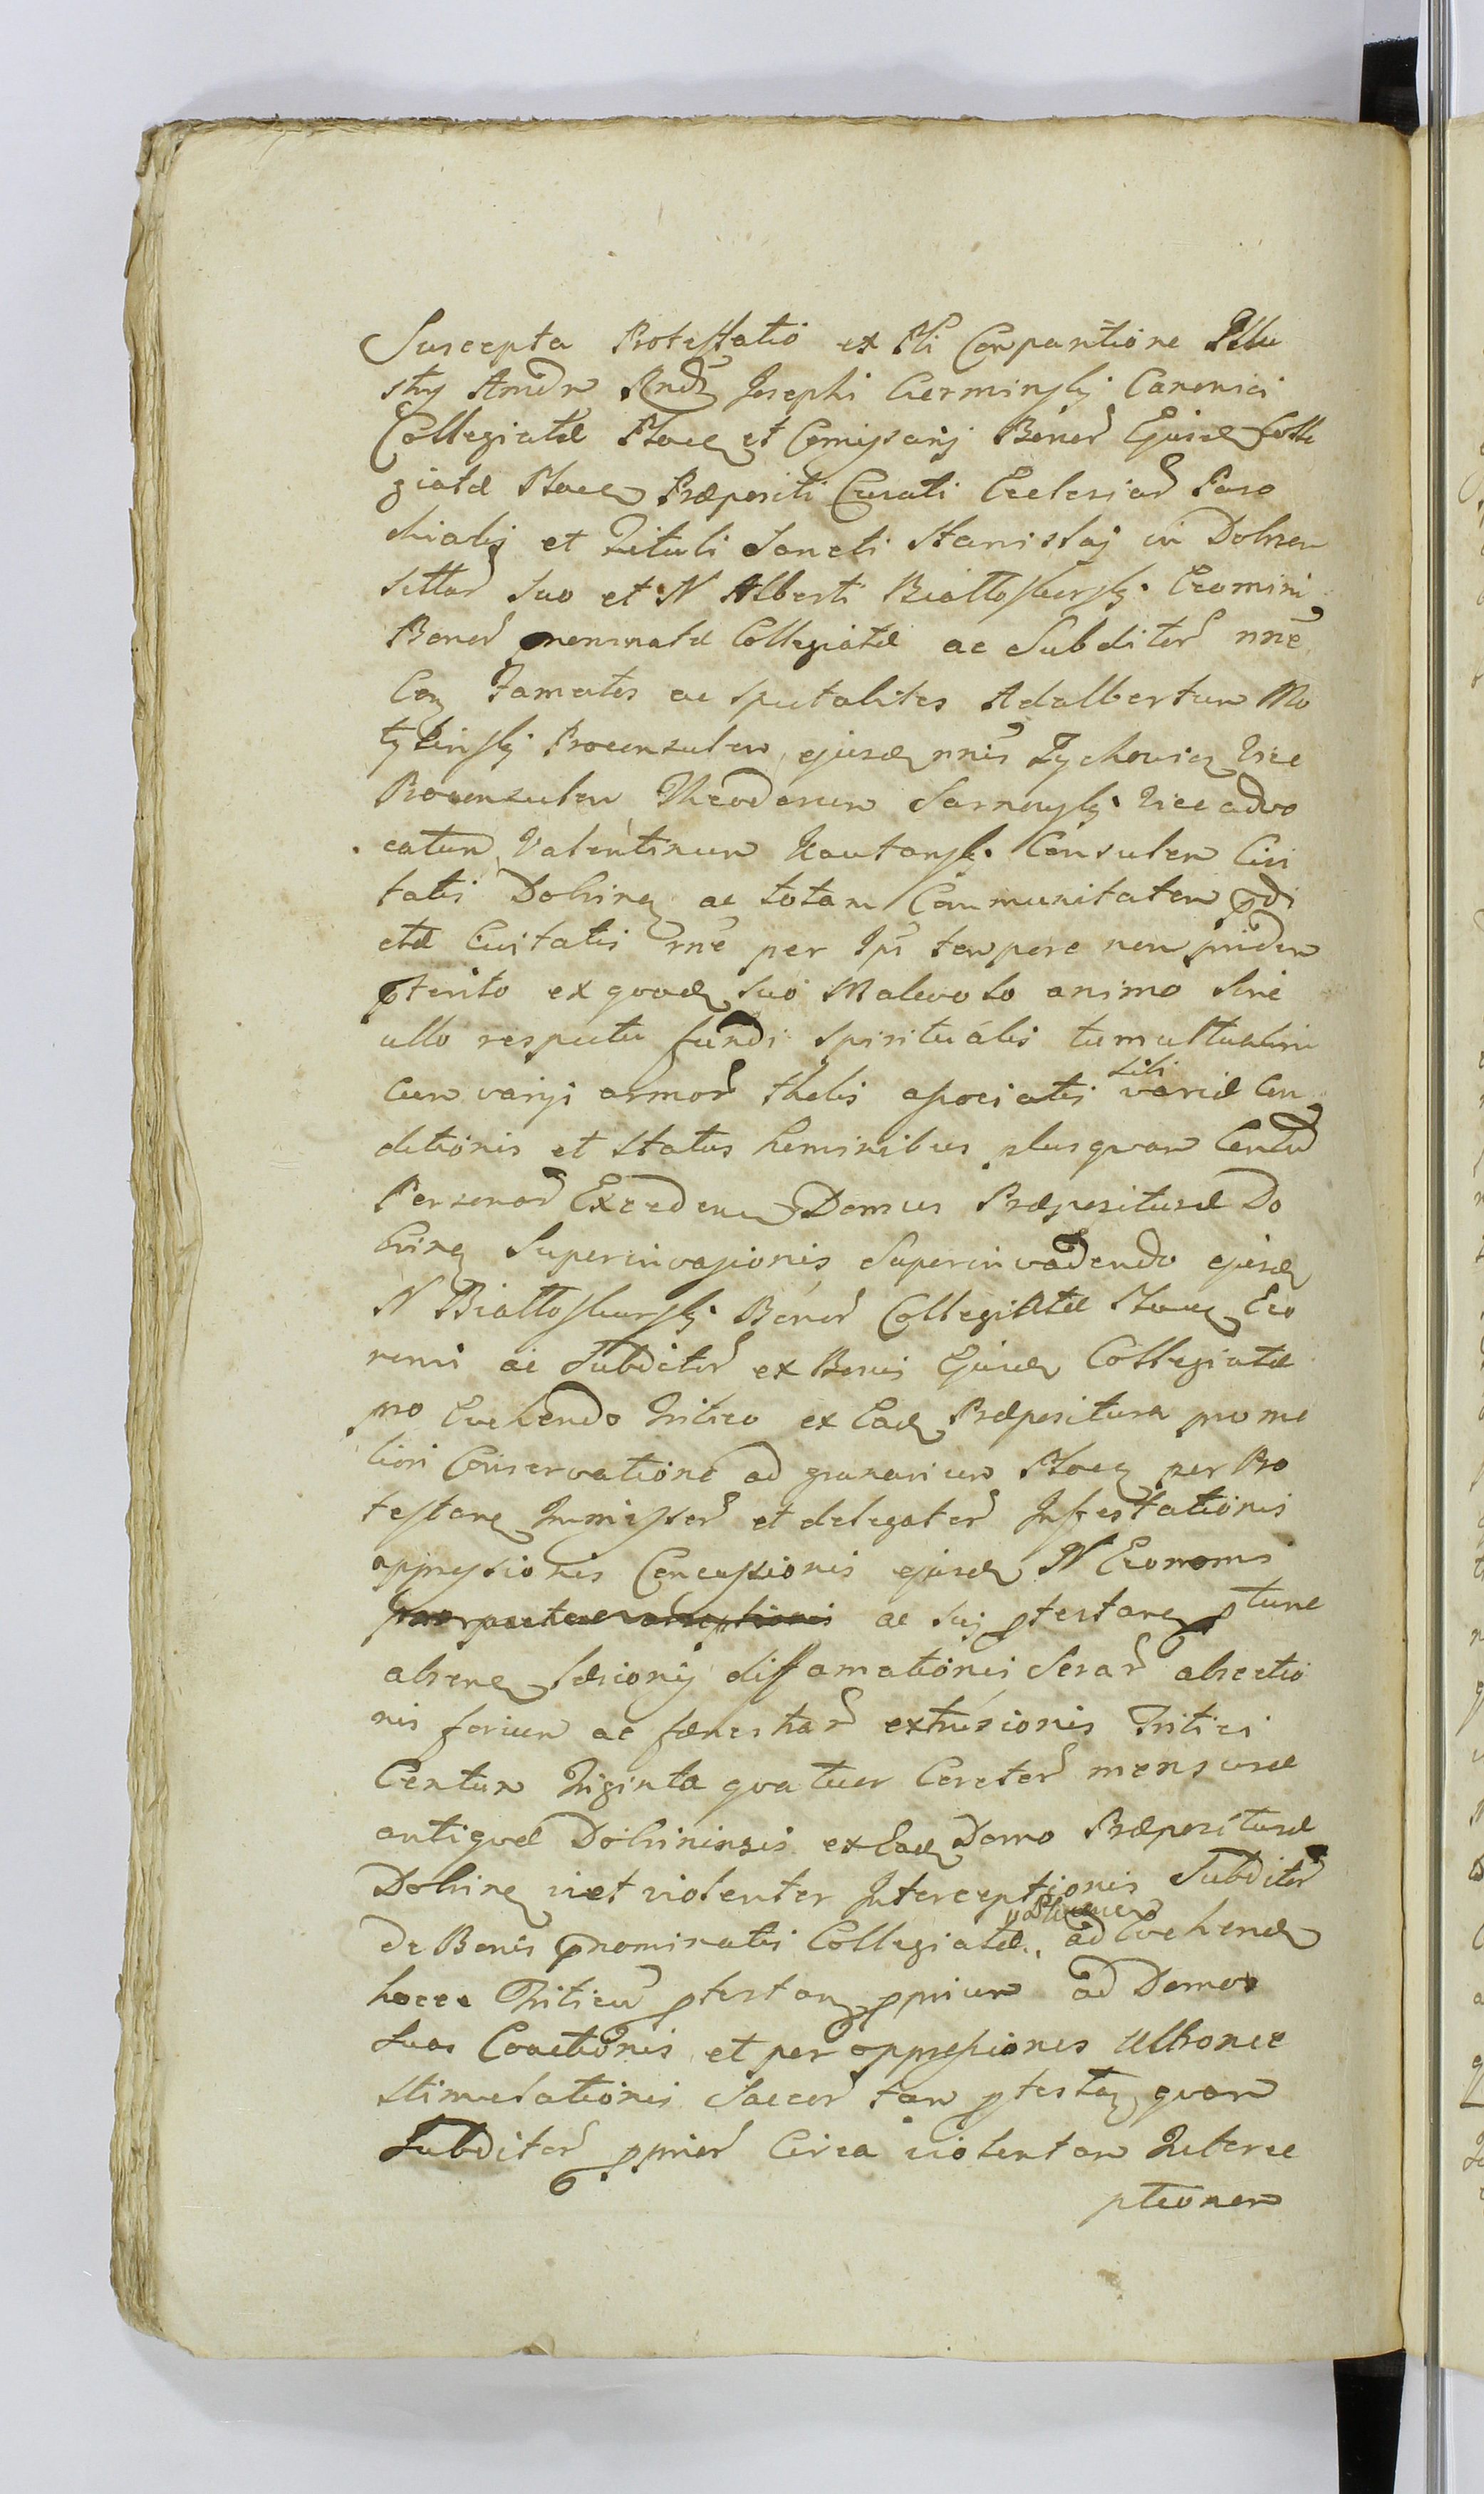 Suscepta Protestatio ex Pli Comparitione Illu
stris Amdm Rndi Josephi Czerminskj Canonici
Collegiatæ Plocen et Comissarij Bonor Ejusd Colle
giatæ Plocen Præpositi Curati Ecclesiar Paro
chialis et Tituli Sancti Stanislaj in Dobrzn
sittar suo et N Alberti Białłoskurskj Economi
Bonor pnominatæ Collegiatæ ac Subditor nne
Con Famatos ac Spectabiles Adalbertum Mo
tylinskj Proconsulem ejusd nnis Zychowicz Vice
Proconsulem Theodorum Sarnowskj Vice advo
catum Valentinum Kautonsk Consulem Civi
tatis Dobrinen ac totam Communitatem pdi
ctæ Civitatis nne per Ips tempore non pridem
pterito ex quod suo Malevolo animo sine
ullo respectu fundi spiritualis tumultualim
cum varijs armor thelis associatis sibi variæ Con
ditionis et status hominibus plusquam Centu
Personar Exceden Domus Præpositura Do
brinen Superinvasionis Superinvadendo ejusd
N Białłoskurskj Bonor Collegiatæ Plocen Eco
nomi ac Subditor ex Bonis Ejusd Collegiatæ
pro Evehendo Tritico ex Ead Præpositura pro me
liori Conservatione ad granarium Plocen per Pro
testanen Immissor et delegator Infestationis
oppressionis Concussionis ejusd N Economi
ac sui ptestanen ptunc
absenen Læsionis diffamationis Serar absectio
nis forium ac fænestrar extrusionis Tritici
Centum Triginta quatuor Coretor mensuræ
antiquæ Dobrinensis ex Ead Domo Præpositura
Dobrinen viet violenter Interceptionis Subditor
de Bonis pnominatis Collegiatæ ad Evehend
hocce Triticu ptestan pprium ad Domos
suas Coactionis et per oppressiones Ultronee
stimulationis Saccor tam ptestan quam
Subditor pprior Circa violentam Interce
ptionem